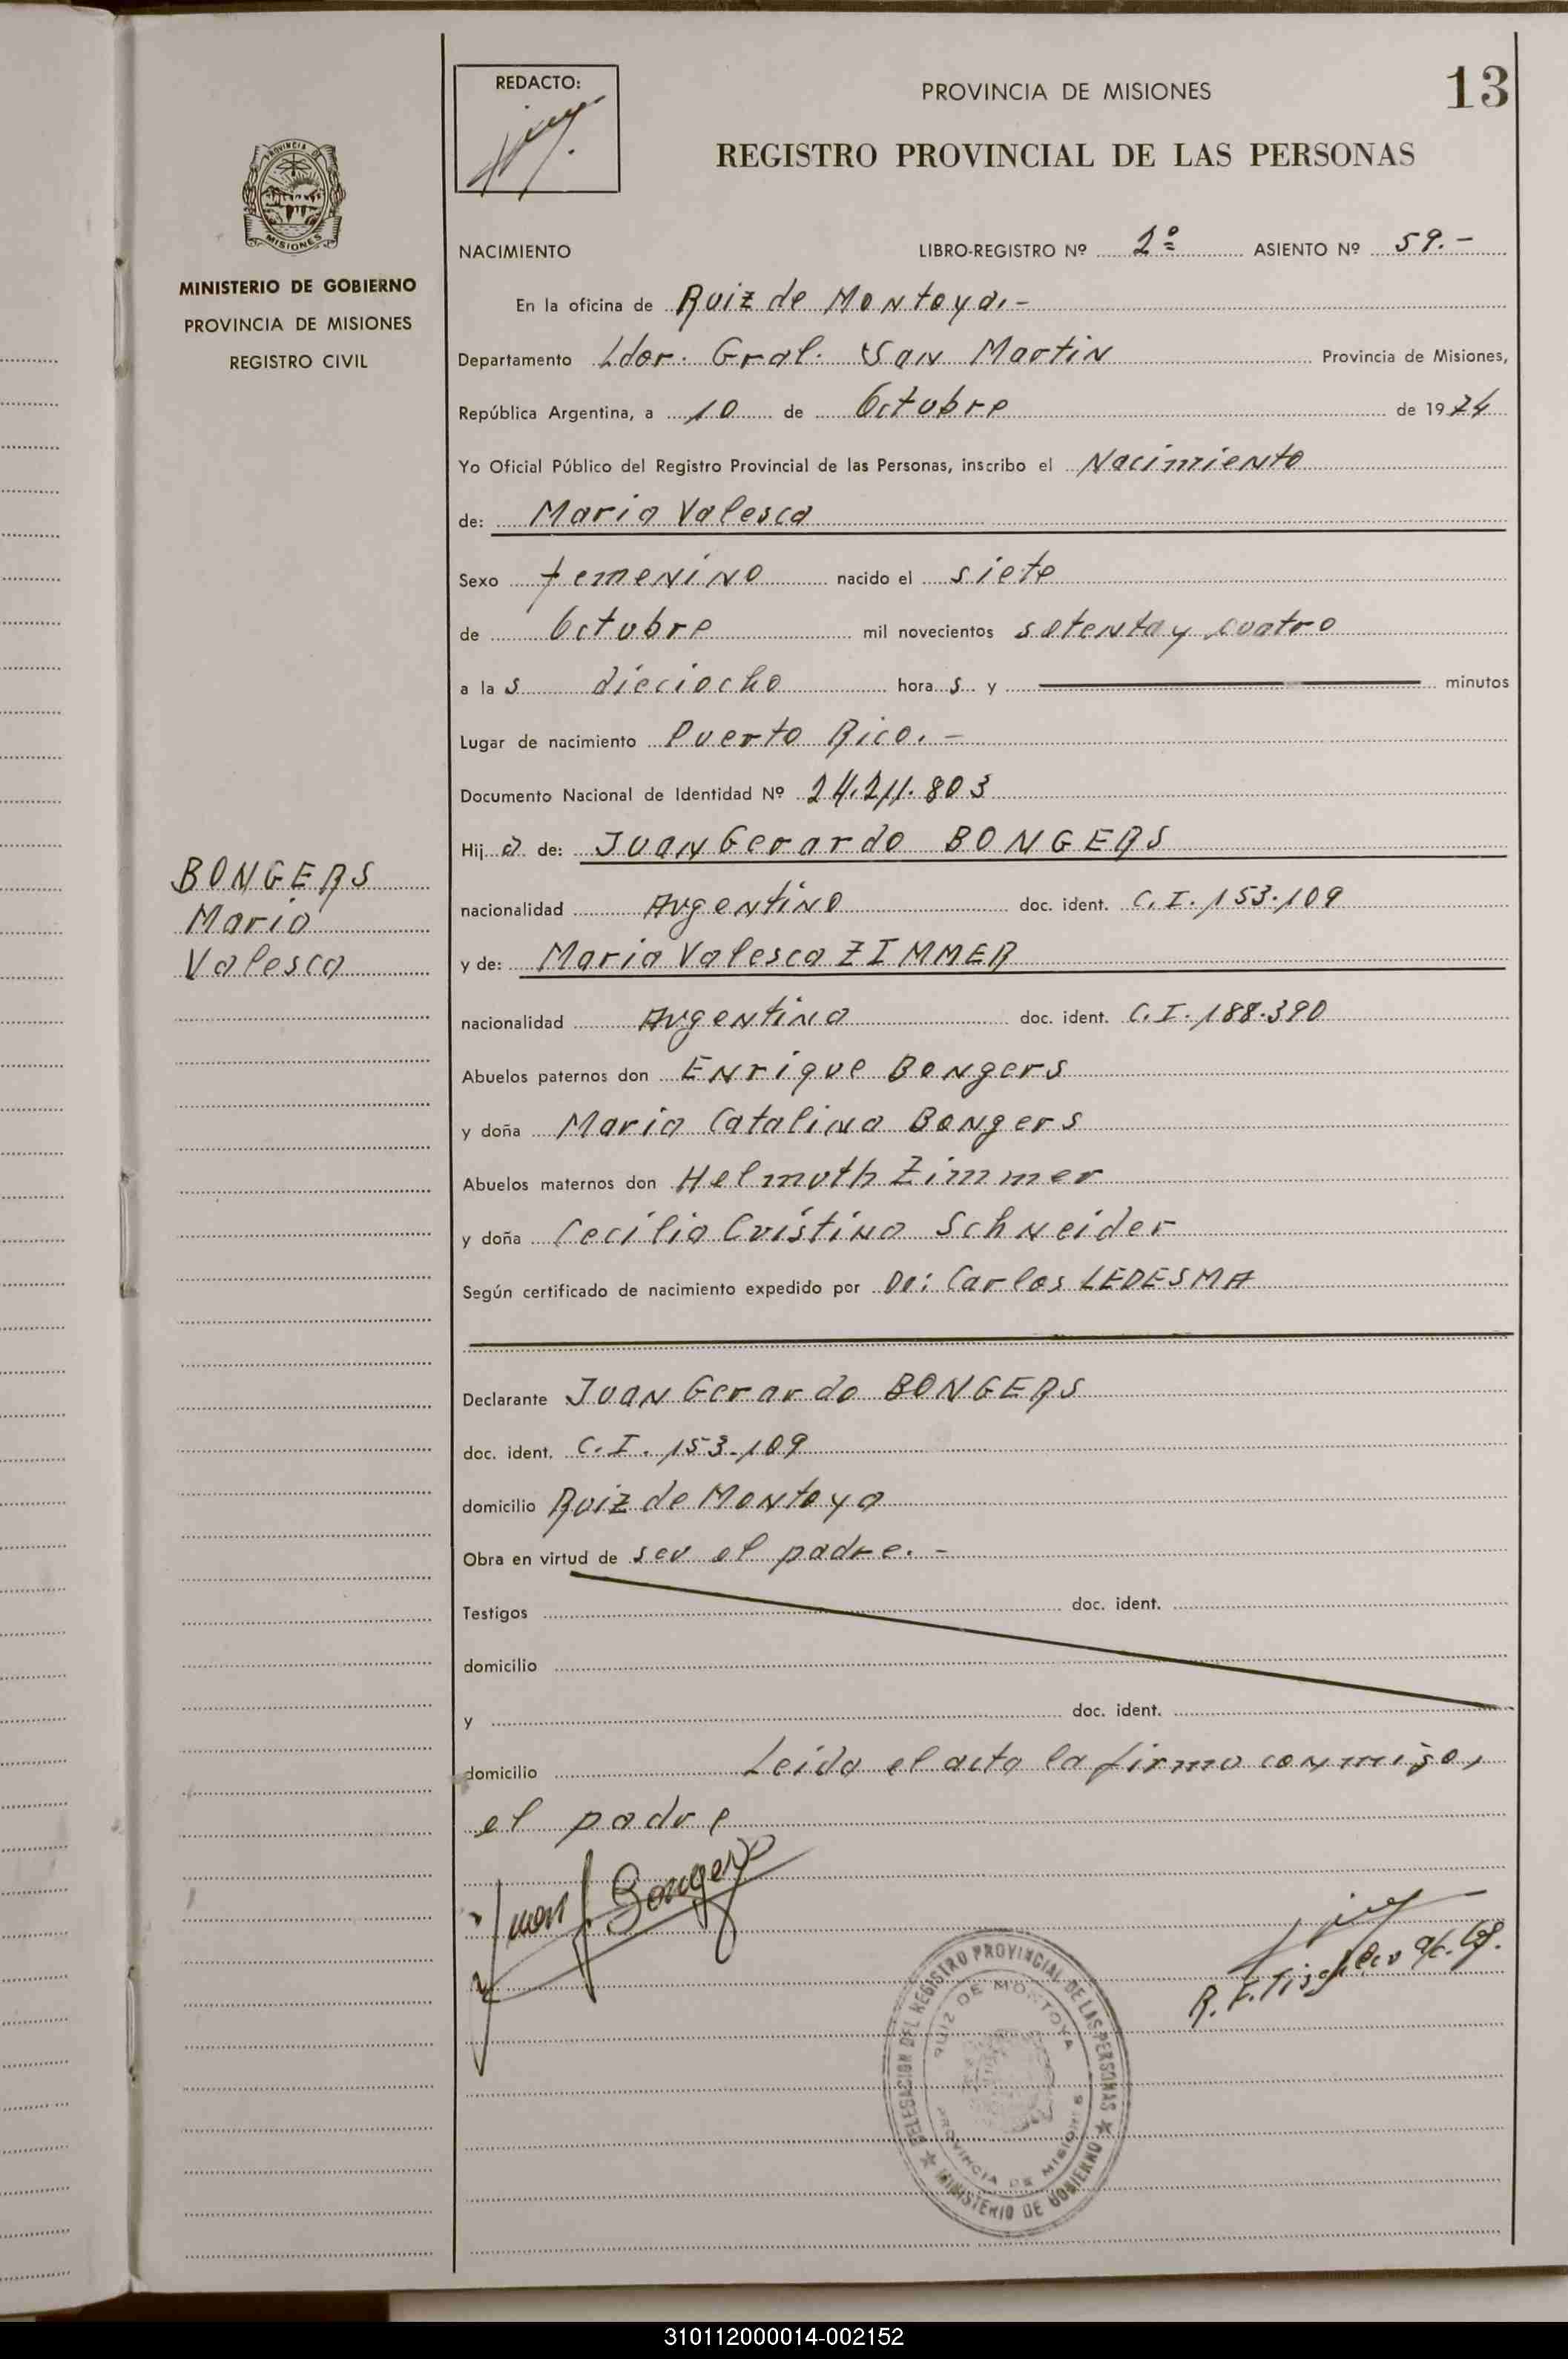 13
REDACTO:
PROVINCIA DE MISIONES
REGISTRO PROVINCIAL DE LAS PERSONAS
PROVINCIA
MISIONES
MINISTERIO DE GOBIERNO
PROVINCIA DE MISIONES
REGISTRO CIVIL
NACIMIENTO LIBRO-REGISTRO Nº 2º ASIENTO Nº 59.-
En la oficina de Ruiz de Montoya.-
Departamento Ldor. Gral. San Martin Provincia de Misiones,
República Argentina, a 10 de Octubre de 1974
Yo Oficial Público del Registro Provincial de las Personas, inscribo el Nacimiento
de: Maria Valesca
Sexo femenino nacido el siete
de Octubre mil novecientos setenta y cuatro
a la s dieciocho hora s y minutos
Lugar de nacimiento Puerto Rico.-
Documento Nacional de Identidad Nº 24.211.803
Hij a de: Juan Gerardo BONGERS
BONGERS
Maria
Valesca
nacionalidad Argentino doc. ident. C.I. 153.109
y de: Maria Valesca ZIMMER
nacionalidad Argentina doc. ident. C.I. 188.390
Abuelos paternos don Enrique Bongers
y doña Maria Catalina Bongers
Abuelos maternos don Helmuth Zimmer
y doña Cecilia Cristina Schneider
Según certificado de nacimiento expedido por Dr: Carlos LEDESMA
Declarante Juan Gerardo BONGERS
doc. ident. C.I. 153.109
domicilio Ruiz de Montoya
Obra en virtud de ser el padre.-
Testigos doc. ident.
domicilio
y doc. ident.
domicilio Leida el acta la firma conmigo,
el padre
Juan G Bongers
R. F. Fischer
DELEGACION DEL REGISTRO PROVINCIAL DE LAS PERSONAS
RUIZ DE MONTOYA
PROVINCIA DE MISIONES
MINISTERIO DE GOBIERNO
310112000014-002152